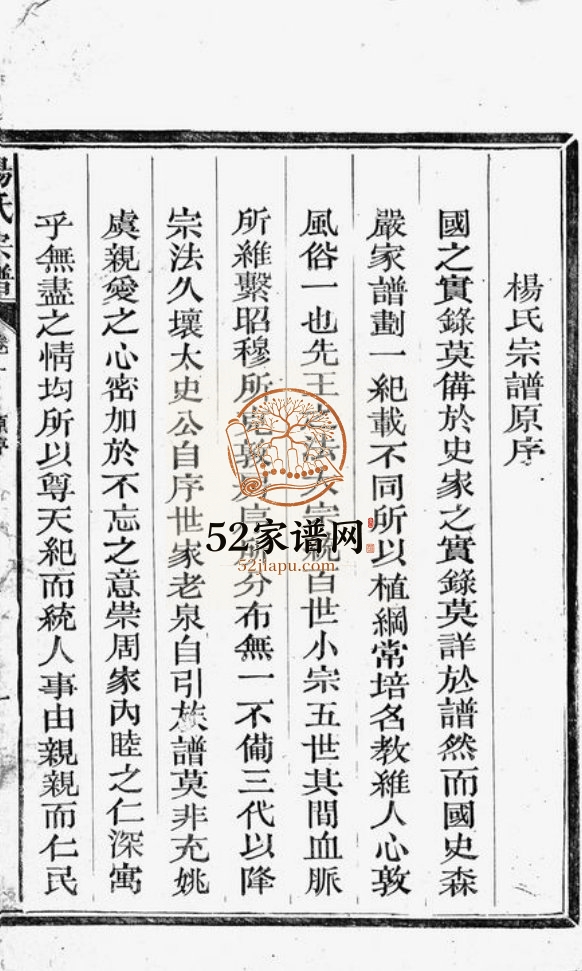 楊氏宗譜原序
國之實錄莫備於史家之實錄莫詳於譜然而國史森
嚴家譜劃一紀載不同所以植綱常培名教維人心敦
風俗一也先王之法大宗統百世小宗五世其間血脈
所維繫昭穆所分布無一不備三代以降
宗法久壞太史公自序世家老泉自引族譜莫非充姚
虞親愛之心密加於不忘之意崇周家內睦之仁深寓
乎無盡之情均所以尊天紀而統人事由親親而仁民
楊氏宗譜
52家谱网
52jiapu.com